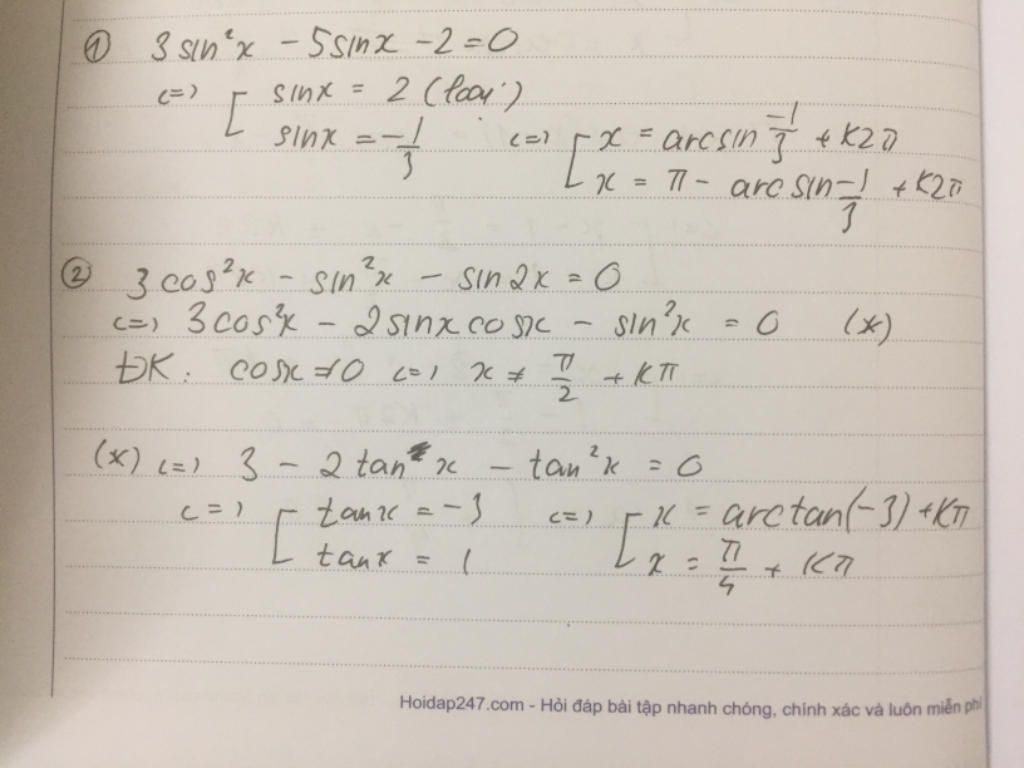 ① 3 sin²x - 5sinx - 2 = 0
<=> [ sinx = 2 (loại)
sinx = -1/3 <=> [ x = arcsin -1/3 + k2π
x = π - arcsin -1/3 + k2π
② 3cos²x - sin²x - sin2x = 0
<=> 3cos²x - 2sinxcosx - sin²x = 0 (*)
ĐK: cosx ≠ 0 <=> x ≠ π/2 + kπ
(*) <=> 3 - 2tan x - tan²x = 0
<=> [ tanx = -3 <=> [ x = arctan(-3) + kπ
tanx = 1 x = π/4 + kπ
Hoidap247.com - Hỏi đáp bài tập nhanh chóng, chính xác và luôn miễn phí